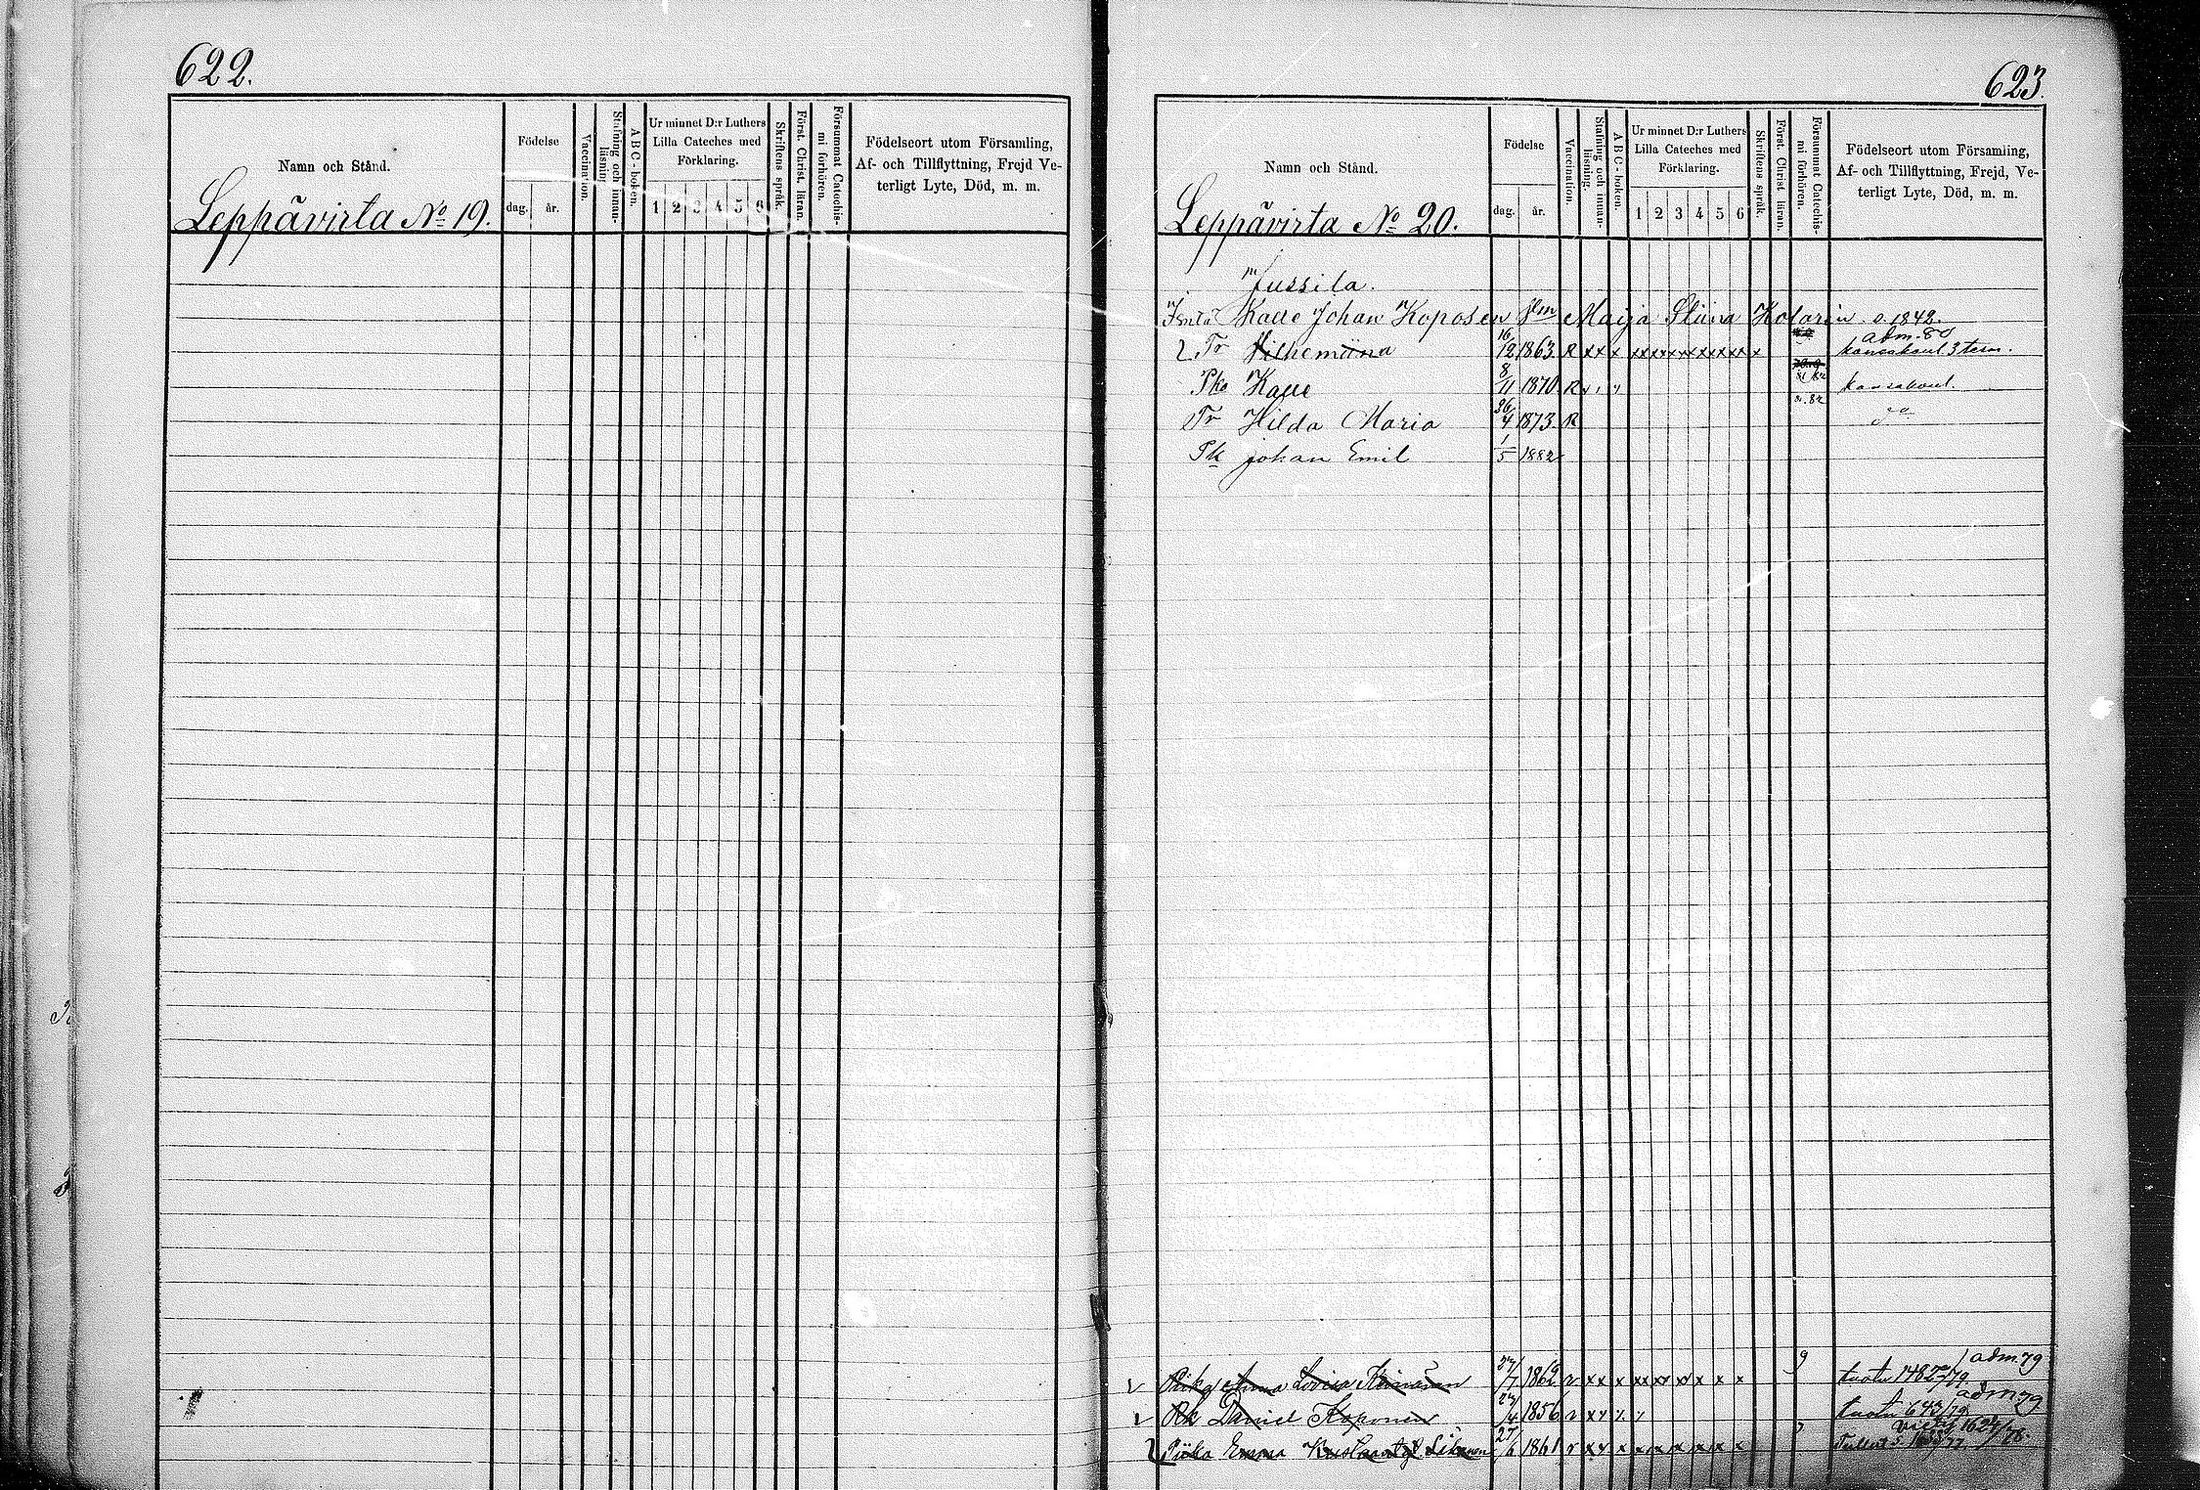 622.
Namn och Stånd.
Leppävirta No 19.
Födelse
dag. år.
Vaccination.
Stafning och innan-
läsning
ABC-boken.
Ur minnet D:r Luthers
Lilla Cateches med
Förklaring.
1 2 3 4 5 6
Skriftens språk.
Först. Christ. läran.
Försummat Catechis-
mi förhören.
Födelseort utom Församling,
Af- och Tillflyttning, Frejd Ve-
terligt Lyte, Död, m. m.
623.
Namn och Stånd.
Leppävirta No 20.
Födelse
dag. år.
Vaccination.
Stafning och innan-
läsning.
ABC-boken.
Ur minnet D:r Luthers
Lilla Cateches med
Förklaring.
1 2 3 4 5 6
Skriftens språk.
Först. Christ läran.
Försummat Catechis-
mi förhören.
Födelseort utom Församling,
Af- och Tillflyttning, Frejd, Ve-
terligt Lyte, Död, m. m.
Jussila.
Kalle Johan Koposen Maija Stiina s. 1842.
Tr Vilhemiina 16/12 1863 R x x x x x x x x x x x x x adm. 80 kansakoul 3 term.
Pka Kalle 8/11 1870 R 81 82 kansakoul.
Tr Hilda Maria 26/4 1873 R 82 do
Pk Johan Emil 1/5 1882
Piika Anna Lovisa 27/7 1862 r x x x x x x x x x x adm 79
Rk Daniel Koponen 27/4 1856 r x x 643/79 adm 79
Piika Emma 27/6 1861 r x x x x x x x x x 1624/78.